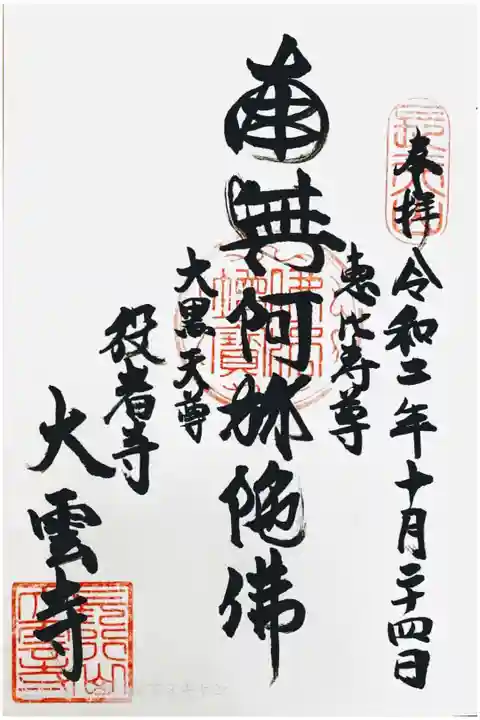 奉拝
令和二年十月二十四日
恵比寿尊
南無阿弥陀佛
大黒天尊
役者寺
大雲寺